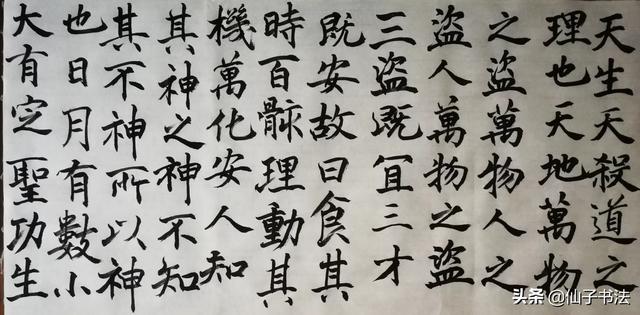 天生天殺道之
理也天地萬物
之盜萬物人之
盜人萬物之盜
三盜既冝三才
既安故曰食其
時百骸理動其
機萬化安人知
其神之神不知
其不神所以神
也日月有數小
大有定聖功生
头条 @仙子书法